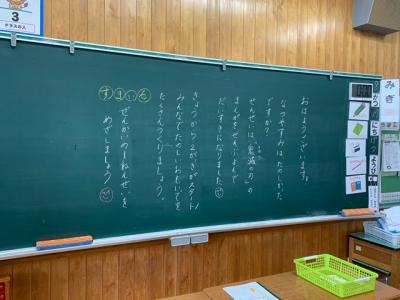 おはようございます。
なつやすみはたのしかった
ですか?
せんせいは、「鬼滅の刃」の
まんがをぜんぶよんで
だいすきになりました
きょうから2がっきがスタート!
みんなでたのしいおもいでを
たくさんつくりましょう。
すまいる
めざしましょう
みぎ
がつ
にち
ようび
3
クラスの人